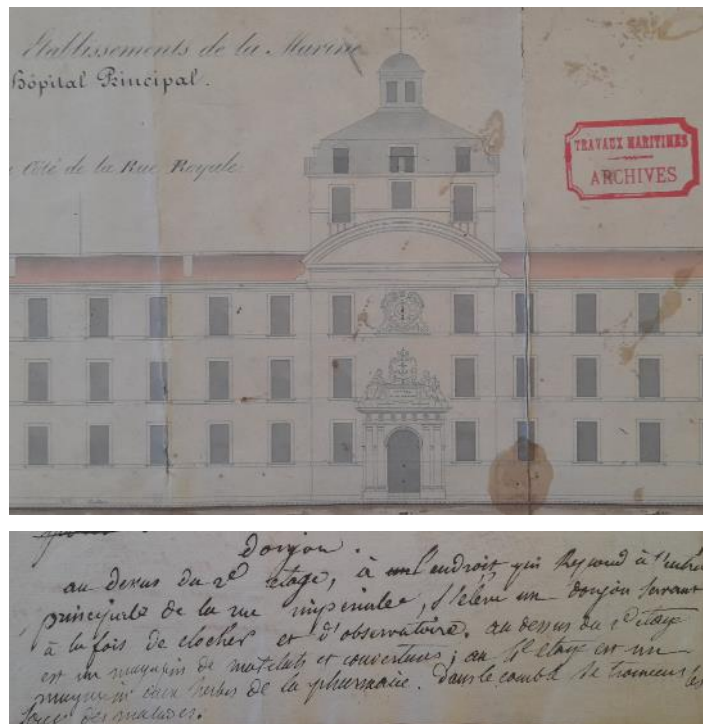 Etablissements de la Marine
Hôpital Principal.
Côté de la Rue Royale
TRAVAUX MARITIMES
ARCHIVES
donjon.
au dessus du 2e étage, à l'endroit qui répond à l'entrée
principale de la rue impériale, s'élève un donjon servant
à la fois de clocher et d'observatoire. au dessus du 2e étage
est un magasin de matelats et couvertures; au 4e étage est un
magasin aux herbes de la pharmacie. Dans le comble se trouvent les
sacs des malades.